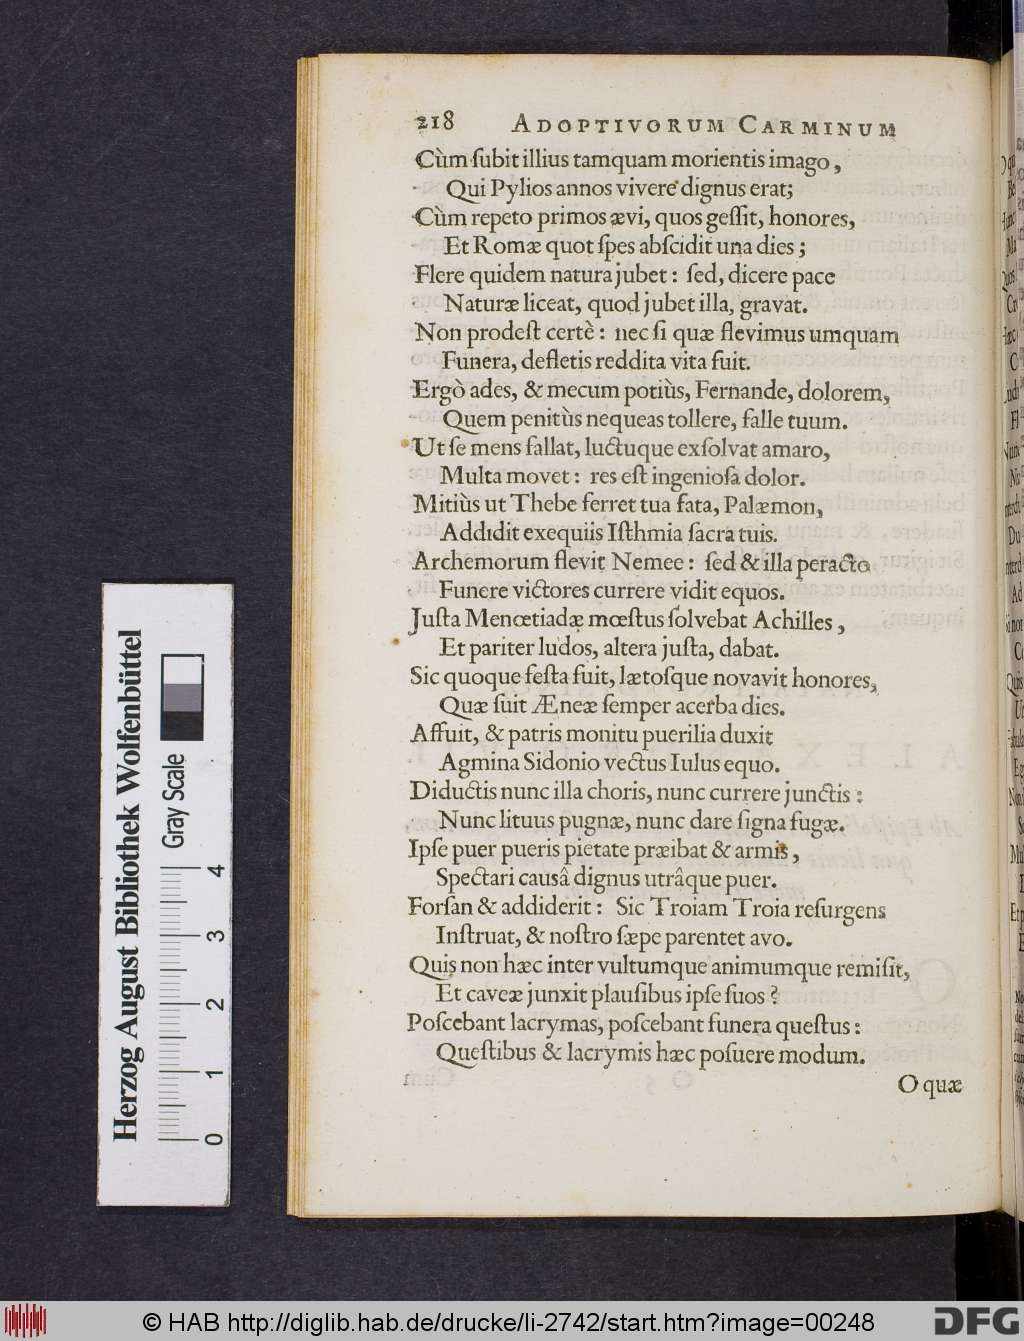 218 ADOPTIVORUM CARMINUM
Cùm ſubit illius tamquam morientis imago,
Qui Pylios annos vivere dignus erat;
Cùm repeto primos ævi, quos geſſit, honores,
Et Romæ quot ſpes abſcidit una dies;
Flere quidem natura jubet: ſed, dicere pace
Naturæ liceat, quod jubet illa, gravat.
Non prodeſt certè: nec ſi quæ flevimus umquam
Funera, defletis reddita vita fuit.
Ergò ades, & mecum potiùs, Fernande, dolorem,
Quem penitùs nequeas tollere, falle tuum.
Ut ſe mens fallat, luctuque exſolvat amaro,
Multa movet: res eſt ingenioſa dolor.
Mitiùs ut Thebe ferret tua fata, Palæmon,
Addidit exequiis Iſthmia ſacra tuis.
Archemorum flevit Nemee: ſed & illa peracto
Funere victores currere vidit equos.
Juſta Menœtiadæ mœſtus ſolvebat Achilles,
Et pariter ludos, altera juſta, dabat.
Sic quoque feſta fuit, lætoſque novavit honores,
Quæ fuit Æneæ ſemper acerba dies.
Affuit, & patris monitu puerilia duxit
Agmina Sidonio vectus Iulus equo.
Diductis nunc illa choris, nunc currere junctis:
Nunc lituus pugnæ, nunc dare ſigna fugæ.
Ipſe puer pueris pietate præibat & armis,
Spectari causâ dignus utrâque puer.
Forſan & addiderit: Sic Troiam Troia reſurgens
Inſtruat, & noſtro ſæpe parentet avo.
Quis non hæc inter vultumque animumque remiſit,
Et caveæ junxit plauſibus ipſe ſuos?
Poſcebant lacrymas, poſcebant funera queſtus:
Queſtibus & lacrymis hæc poſuere modum.
O quæ
Herzog August Bibliothek Wolfenbüttel
Gray Scale
0 1 2 3 4
© HAB http://diglib.hab.de/drucke/li-2742/start.htm?image=00248
DFG